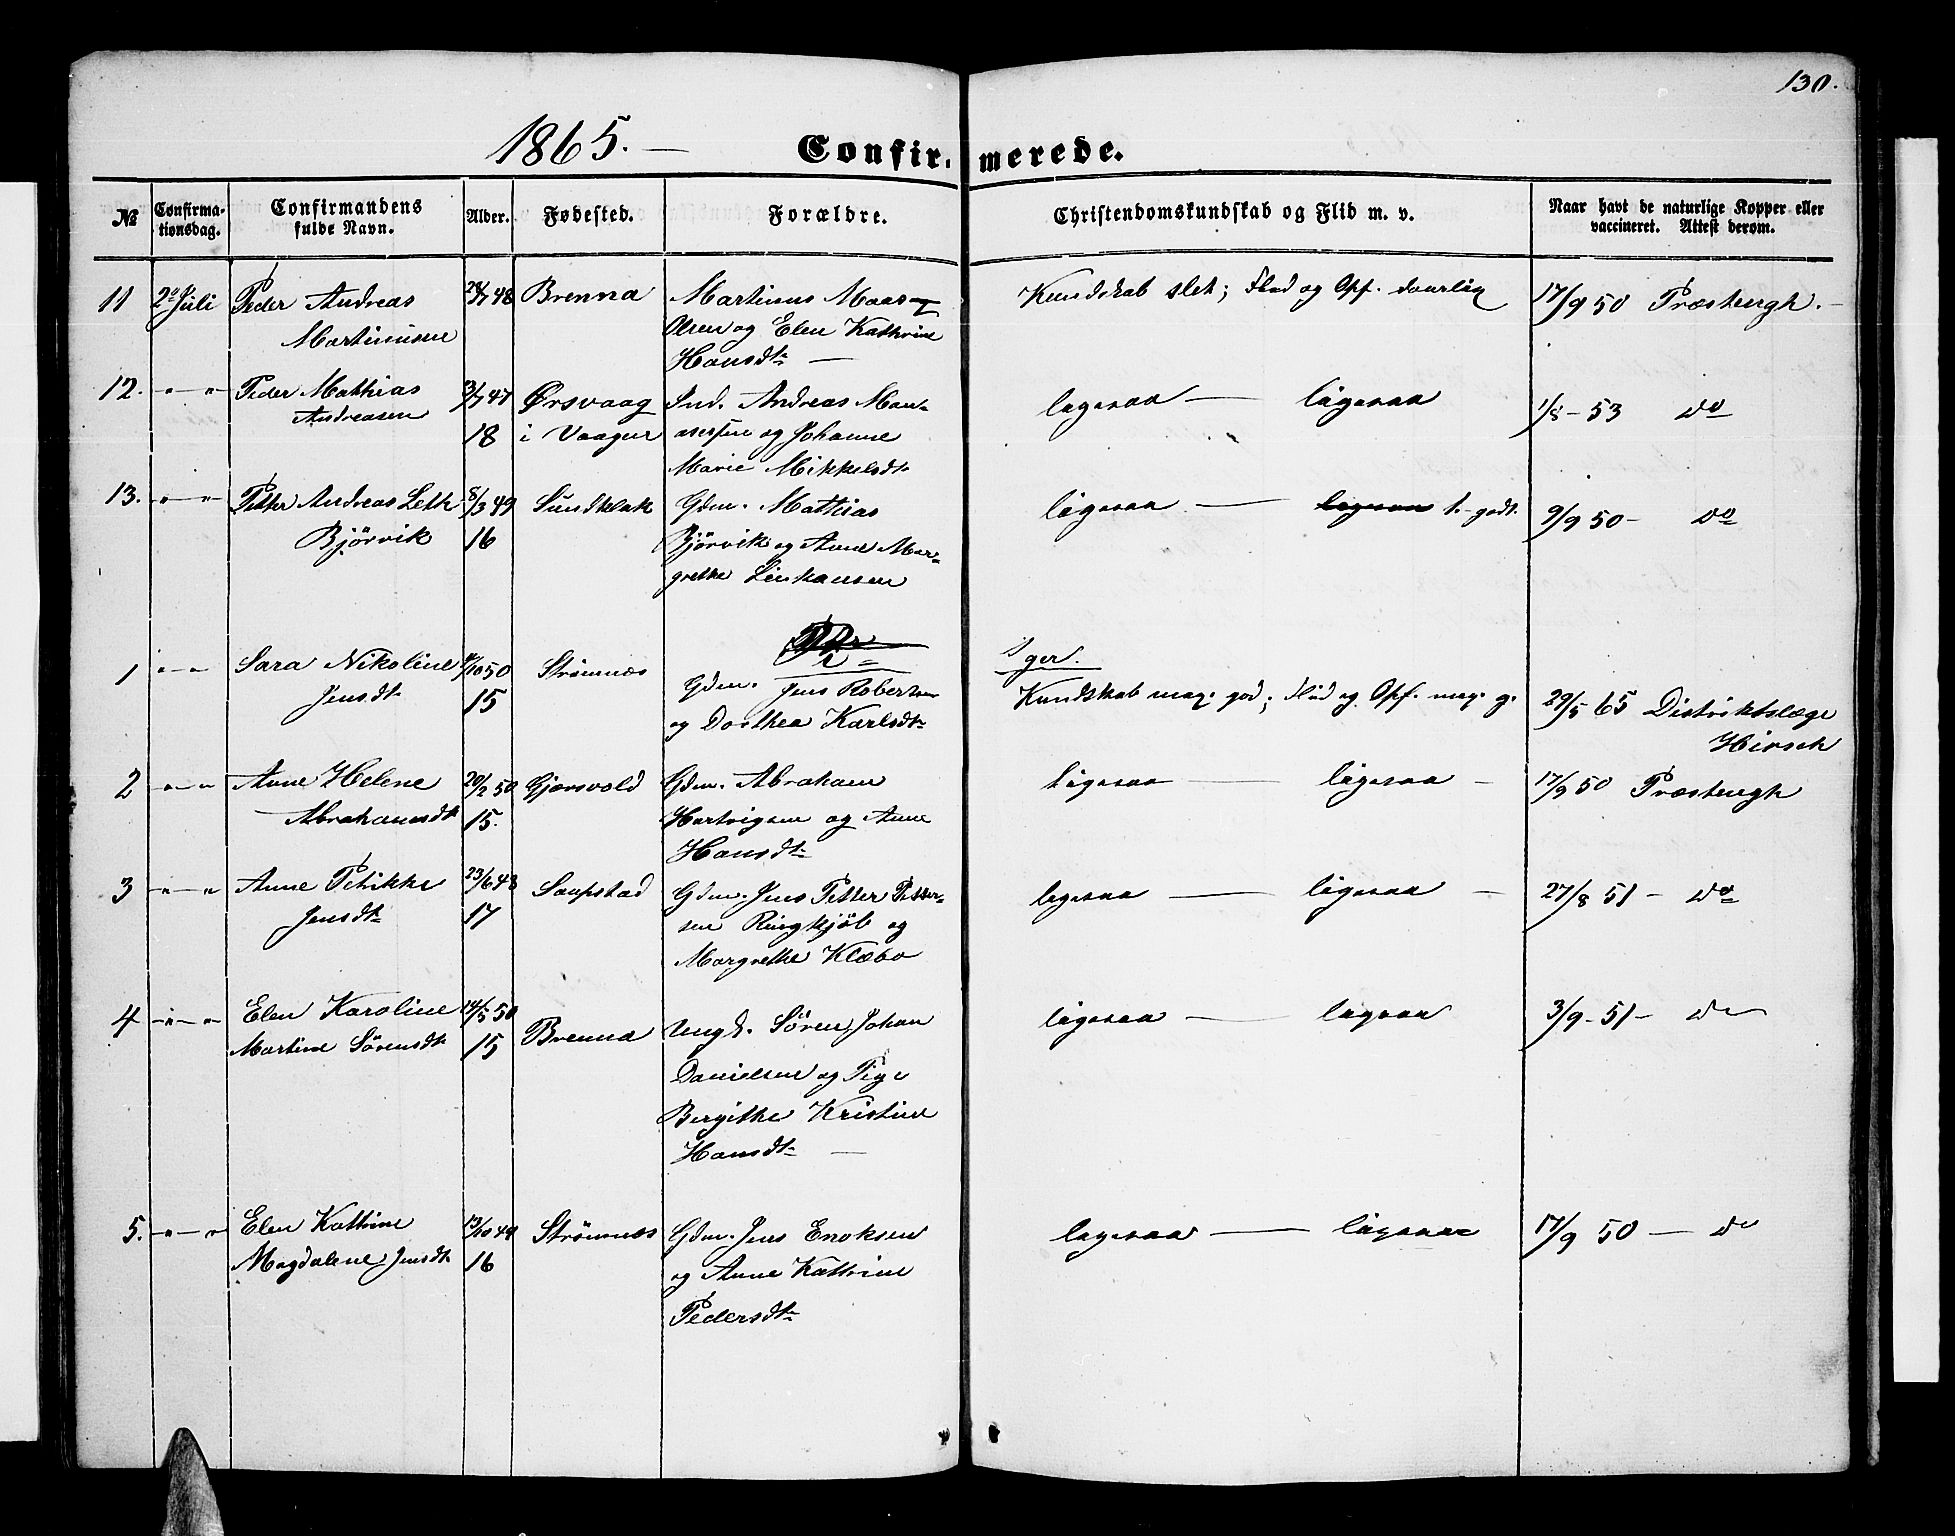 130.
1865. — Confirmerede.
№ Confirmationsdag. Confirmandens fulde Navn. Alder. Fødested. Forældre. Christendomskundskab og Flid m. v. Naar havt de naturlige Kopper eller vaccineret. Attest derom.
11 2d Juli Peder Andreas 48 Brenna Martinus Maas Kundskab slet; Flid og Opf. daarlig 17/9 50 Præstengh. —
Martinusen Olsen og Elen Kathrine
Hansdtr —
12. " — " Peder Mathias 47 Ørsvaag Ind. Andreas Man- ligesaa — ligesaa 1/8 - 53 do
Andreasen 18 i Vaagen assesen og Johanne
Marie Mikkelsdtr
13. " — " Petter Andreas Leth 8/3 49 Sundklak Gdm. Mathias ligesaa — ligesaa t. godt. 9/9 50 - do
Bjørvik 16 Bjørvik og Anne Mar-
grethe Linhausen
Pger.
1 " — " Sara Nikoline /10 50 Strømnæs Gdm. Jens Robertsen Kundskab meg. god; Flid og Opf. meg. g. 29/5 65 Distriktslæge
Jensdtr 15 og Dorthea Karlsdtr Hirsch
2 " — " Anne Helene 20/2 50 Gjærsvold Gdm. Abraham ligesaa — ligesaa — 17/9 50 Præstengh
Abrahamsdtr 15. Hartvigsen og Anne
Hansdtr
3 " — " Anne Petrikke 23/6 48 Saupstad Gdm. Jens Petter Petter- ligesaa — ligesaa — 27/8 51 - do
Jensdtr 17 sen Ringkjöb og
Margrethe Klæbo
4 " — " Elen Karoline 14/5 50 Brenna Ungk. Søren Johan ligesaa — ligesaa 3/9 - 51 - do
Martine Sörensdtr 15 Danielsen og Pige
Bergithe Kristine
Hansdtr —
5. " — " Elen Kathrine 13/10 48 Strømnæs Gdm. Jens Enoksen ligesaa — ligesaa 17/9 50 — do
Magdalene Jensdtr 16 og Anne Kathrine
Pedersdtr